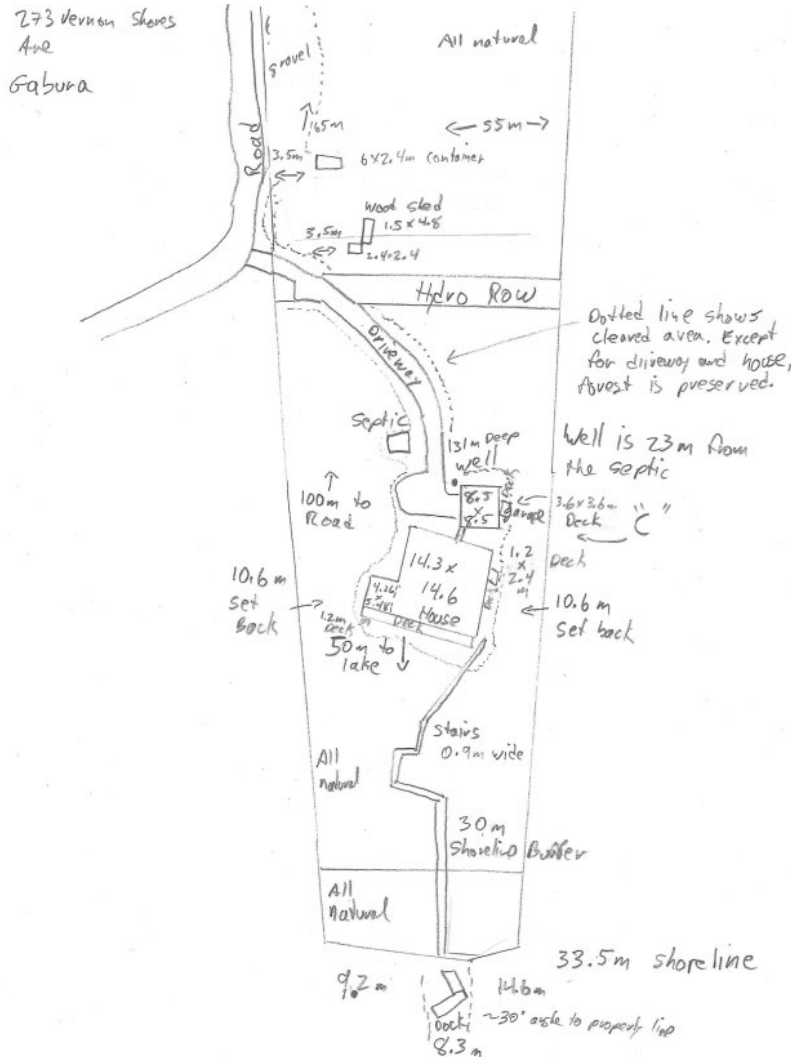 273 Vernon Shores
Ave
Gabura
gravel
All natural
165m
55m
Road
3.5m
6X2.4m container
wood shed
1.5 x 4.8
3.5m
2.4x2.4
Hydro Row
Driveway
Dotted line shows
cleared area. Except
for driveway and house,
forest is preserved.
Septic
131m Deep
well
Well is 23m from
the septic
8.5
x
8.5
Garage
Deck
3.6x3.6m
Deck
"C"
100m to
Road
14.3 x
14.6
House
1.2
x
2.4
m
Deck
Deck
10.6m
Set
Back
4.26
x
5.48
1.2m
Deck
Deck
10.6m
Set back
50m to
lake
Stairs
0.9m wide
All
natural
30m
Shoreline Buffer
All
Natural
33.5m shoreline
9.2m
14.6m
Dock
~30° angle to property line
8.3m